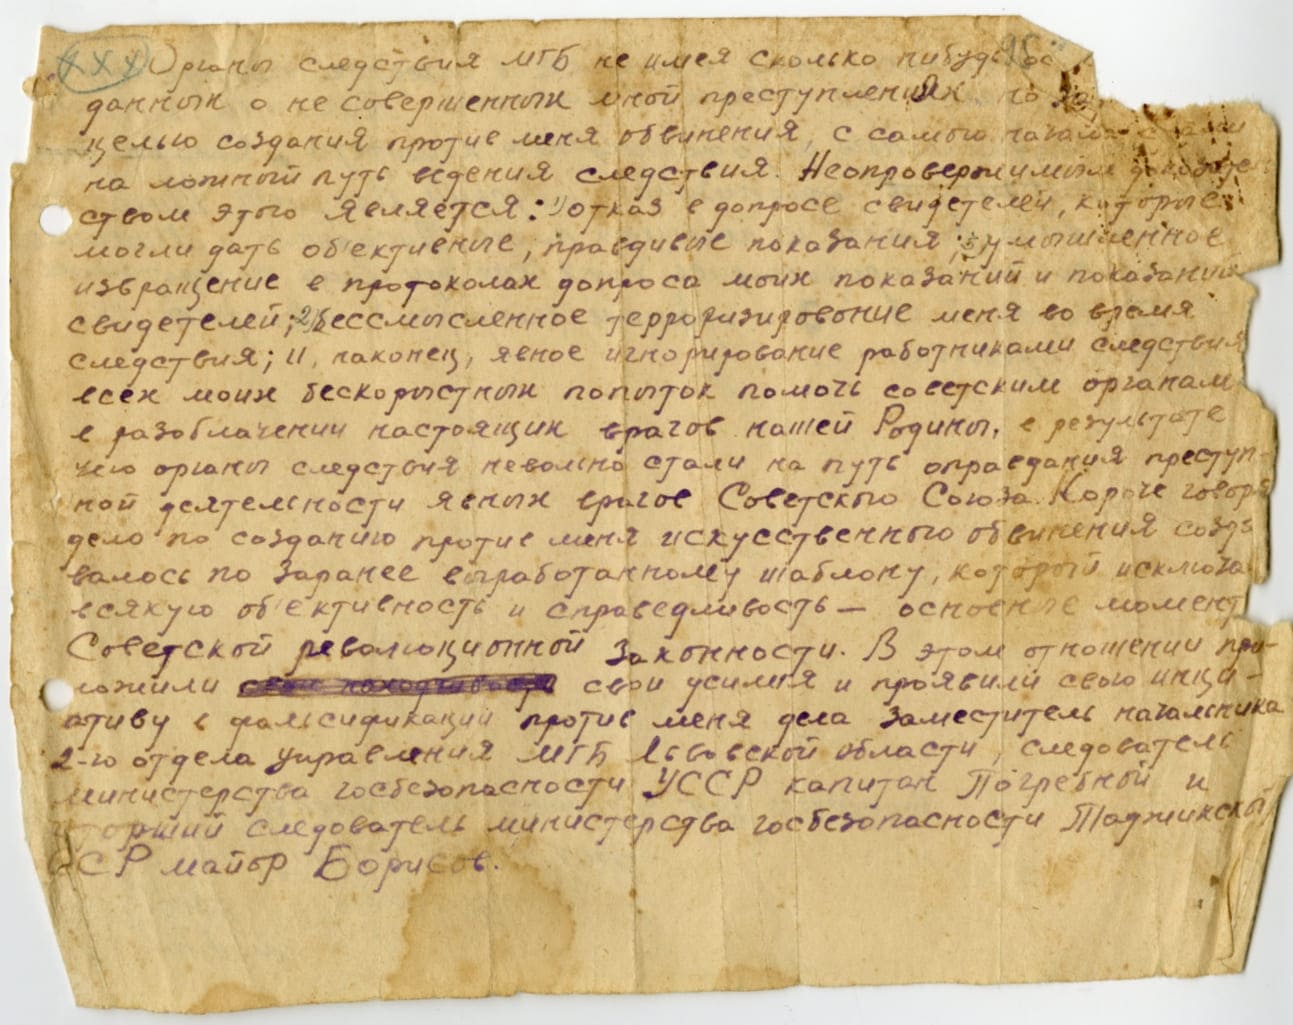 ххх Органы следствия МГБ не имея сколько нибудь ос
данных о не совершенных мной преступлениях, но
целью создания против меня обвинения, с самого начала стали
на ложный путь ведения следствия. Неопровержимым доказатель
ством этого является: 1) отказ в допросе свидетелей, которые
могли дать об'ективные, правдивые показания; умышленное
извращение в протоколах допроса моих показаний и показаний
свидетелей; 2) бессмысленное терроризирование меня во время
следствия; и, наконец, явное игнорирование работниками следствия
всех моих бескорыстных попыток помочь советским органам
в разоблачении настоящих врагов нашей Родины, в результате
чего органы следствия невольно стали на путь оправдания преступ-
ной деятельности явных врагов Советского Союза. Короче говоря
дело по созданию против меня искусственного обвинения созда
валось по заранее выработанному шаблону, который исключа
всякую об'ективность и справедливость — основные момент
Советской революционной законности. В этом отношении при-
ложили свои усилия и проявили свою иници-
ативу в фальсификации против меня дела заместитель начальника
2-го отдела управления МГБ Львовской области, следователь
министерства госбезопасности УССР капитан Погребной и
старший следователь министерства госбезопасности Таджикской
ССР майор Борисов.